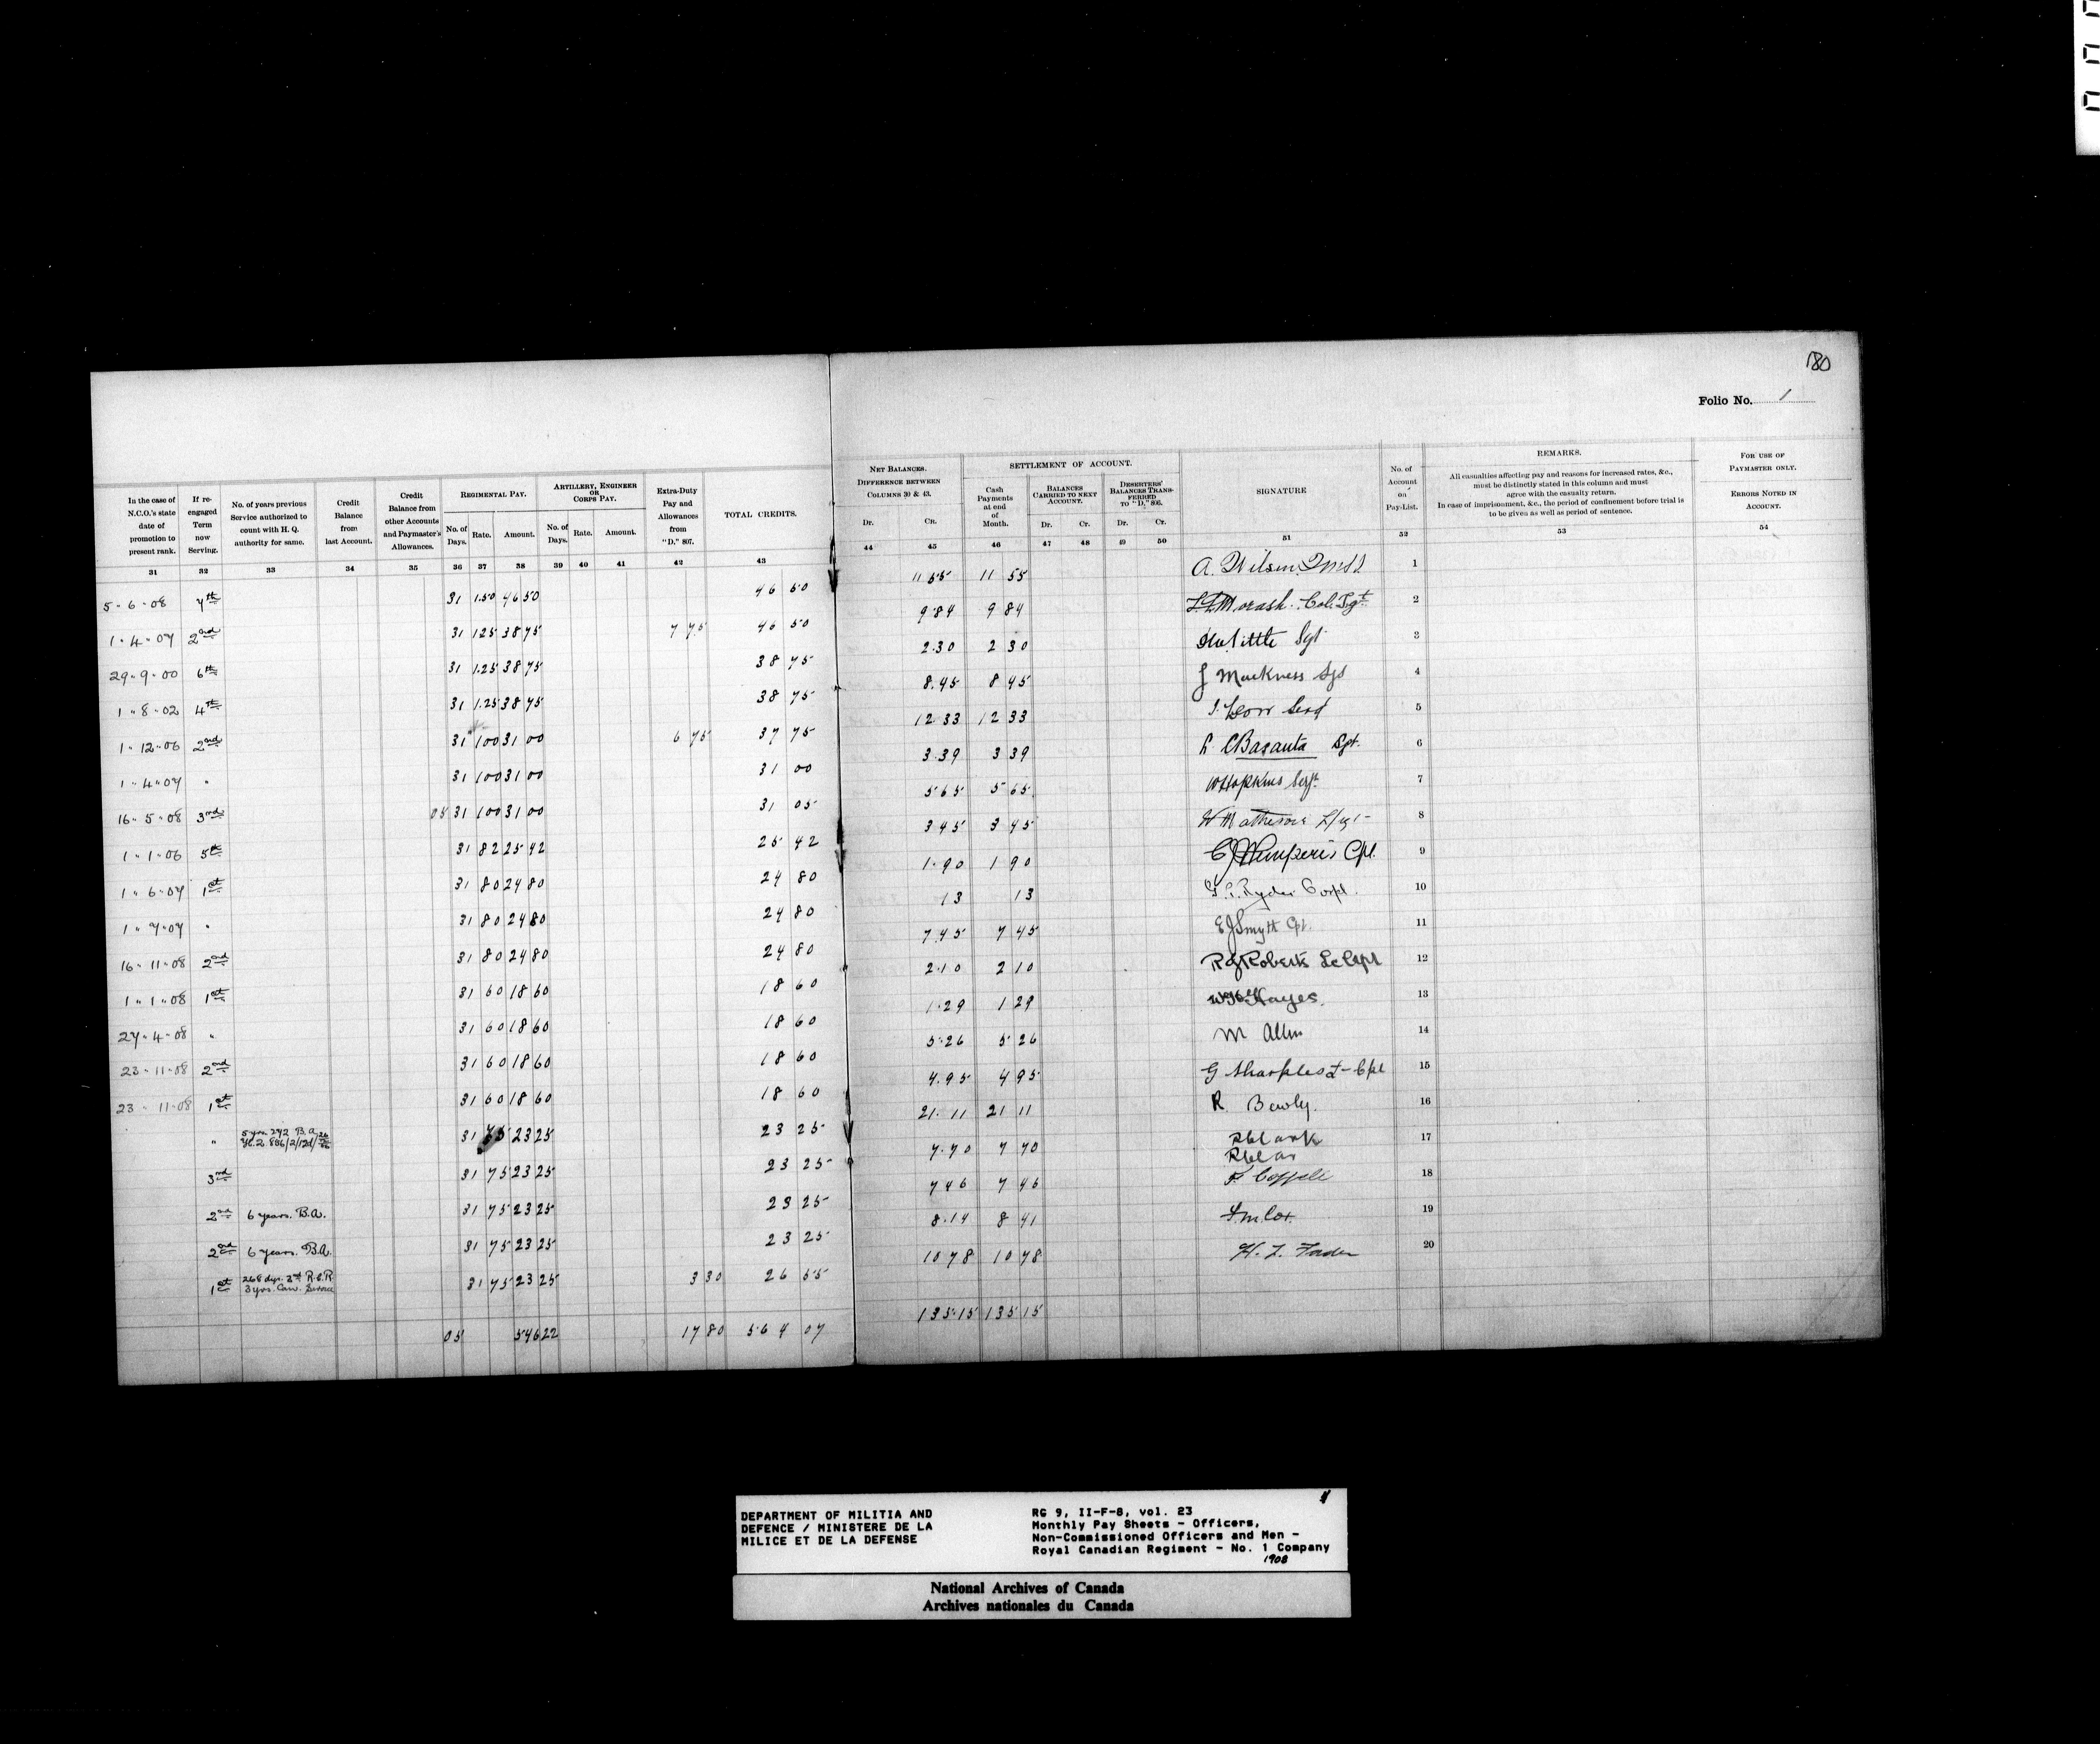 180
Folio No. 1
In the case of N.C.O.'s state date of promotion to present rank.
If re-engaged Term now Serving.
No. of years previous Service authorized to count with H. Q. authority for same.
Credit Balance from last Account.
Credit Balance from other Accounts and Paymaster's Allowances.
REGIMENTAL PAY.
No. of Days. Rate. Amount.
ARTILLERY, ENGINEER OR CORPS PAY.
No. of Days. Rate. Amount.
Extra-Duty Pay and Allowances from "D," 807.
TOTAL CREDITS.
31 32 33 34 35 36 37 38 39 40 41 42 43
5-6-08 7th 31 1.50 46 50 46 50
1.4.07 2nd 31 125 38 75 7 75 46 50
29.9.00 6th 31 1.25 38 75 38 75
1.8.02 4th 31 1.25 38 75 38 75
1.12.06 2nd 31 100 31 00 6 75 37 75
1.4.07 " 31 100 31 00 31 00
16.5.08 3rd 05 31 100 31 00 31 05
1.1.06 5th 31 82 25 42 25 42
1.6.07 1st 31 80 24 80 24 80
1.7.07 " 31 80 24 80 24 80
16.11.08 2nd 31 80 24 80 24 80
1.1.08 1st 31 60 18 60 18 60
27.4.08 " 31 60 18 60 18 60
23.11.08 2nd 31 60 18 60 18 60
23.11.08 1st 31 60 18 60 18 60
" 5 yrs 292 B.A. 31 75 23 25 23 25
3rd 31 75 23 25 23 25
2nd 6 years. B.A. 31 75 23 25 23 25
2nd 6 years. B.A. 31 75 23 25 23 25
1st 268 dys. 2nd R.C.R. 3 yrs. Can. Service 31 75 23 25 3 30 26 55
05 546 22 17 80 564 07
NET BALANCES.
DIFFERENCE BETWEEN COLUMNS 30 & 43.
Dr. Cr.
SETTLEMENT OF ACCOUNT.
Cash Payments at end of Month.
BALANCES CARRIED TO NEXT ACCOUNT.
Dr. Cr.
DESERTERS' BALANCES TRANSFERRED TO "D," 806.
Dr. Cr.
SIGNATURE
No. of Account on Pay-List.
REMARKS.
All casualties affecting pay and reasons for increased rates, &c.,
must be distinctly stated in this column and must
agree with the casualty return.
In case of imprisonment, &c., the period of confinement before trial is
to be given as well as period of sentence.
FOR USE OF PAYMASTER ONLY.
ERRORS NOTED IN ACCOUNT.
44 45 46 47 48 49 50 51 52 53 54
11 55 11 55 A. Wilson 1
9.84 9 84 Morash. Col. Sgt 2
2.30 2 30 Little Sgt 3
8.45 8 45 J Mackness Sgt 4
12 33 12 33 5
3.39 3 39 Basanta Sgt. 6
5 65 5 65 W Hopkins Sergt 7
3 45 3 45 W Matheson 8
1.90 1 90 Cpl. 9
13 13 Ryder Corpl. 10
7.45 7 45 EJ Smyth Cpl. 11
2.10 2 10 RJ Roberts 12
1.29 1 29 Hayes. 13
5.26 5 26 M Allen 14
4.95 4 95 G Sharples L-Cpl 15
21.11 21 11 R. Bewly. 16
7.70 7 70 R Clark 17
7 46 7 46 18
8.14 8 41 Cox 19
10 78 10 78 Fader 20
135.15 135 15
DEPARTMENT OF MILITIA AND
DEFENCE / MINISTERE DE LA
MILICE ET DE LA DEFENSE
RG 9, II-F-8, vol. 23
Monthly Pay Sheets - Officers,
Non-Commissioned Officers and Men -
Royal Canadian Regiment - No. 1 Company
1908
National Archives of Canada
Archives nationales du Canada